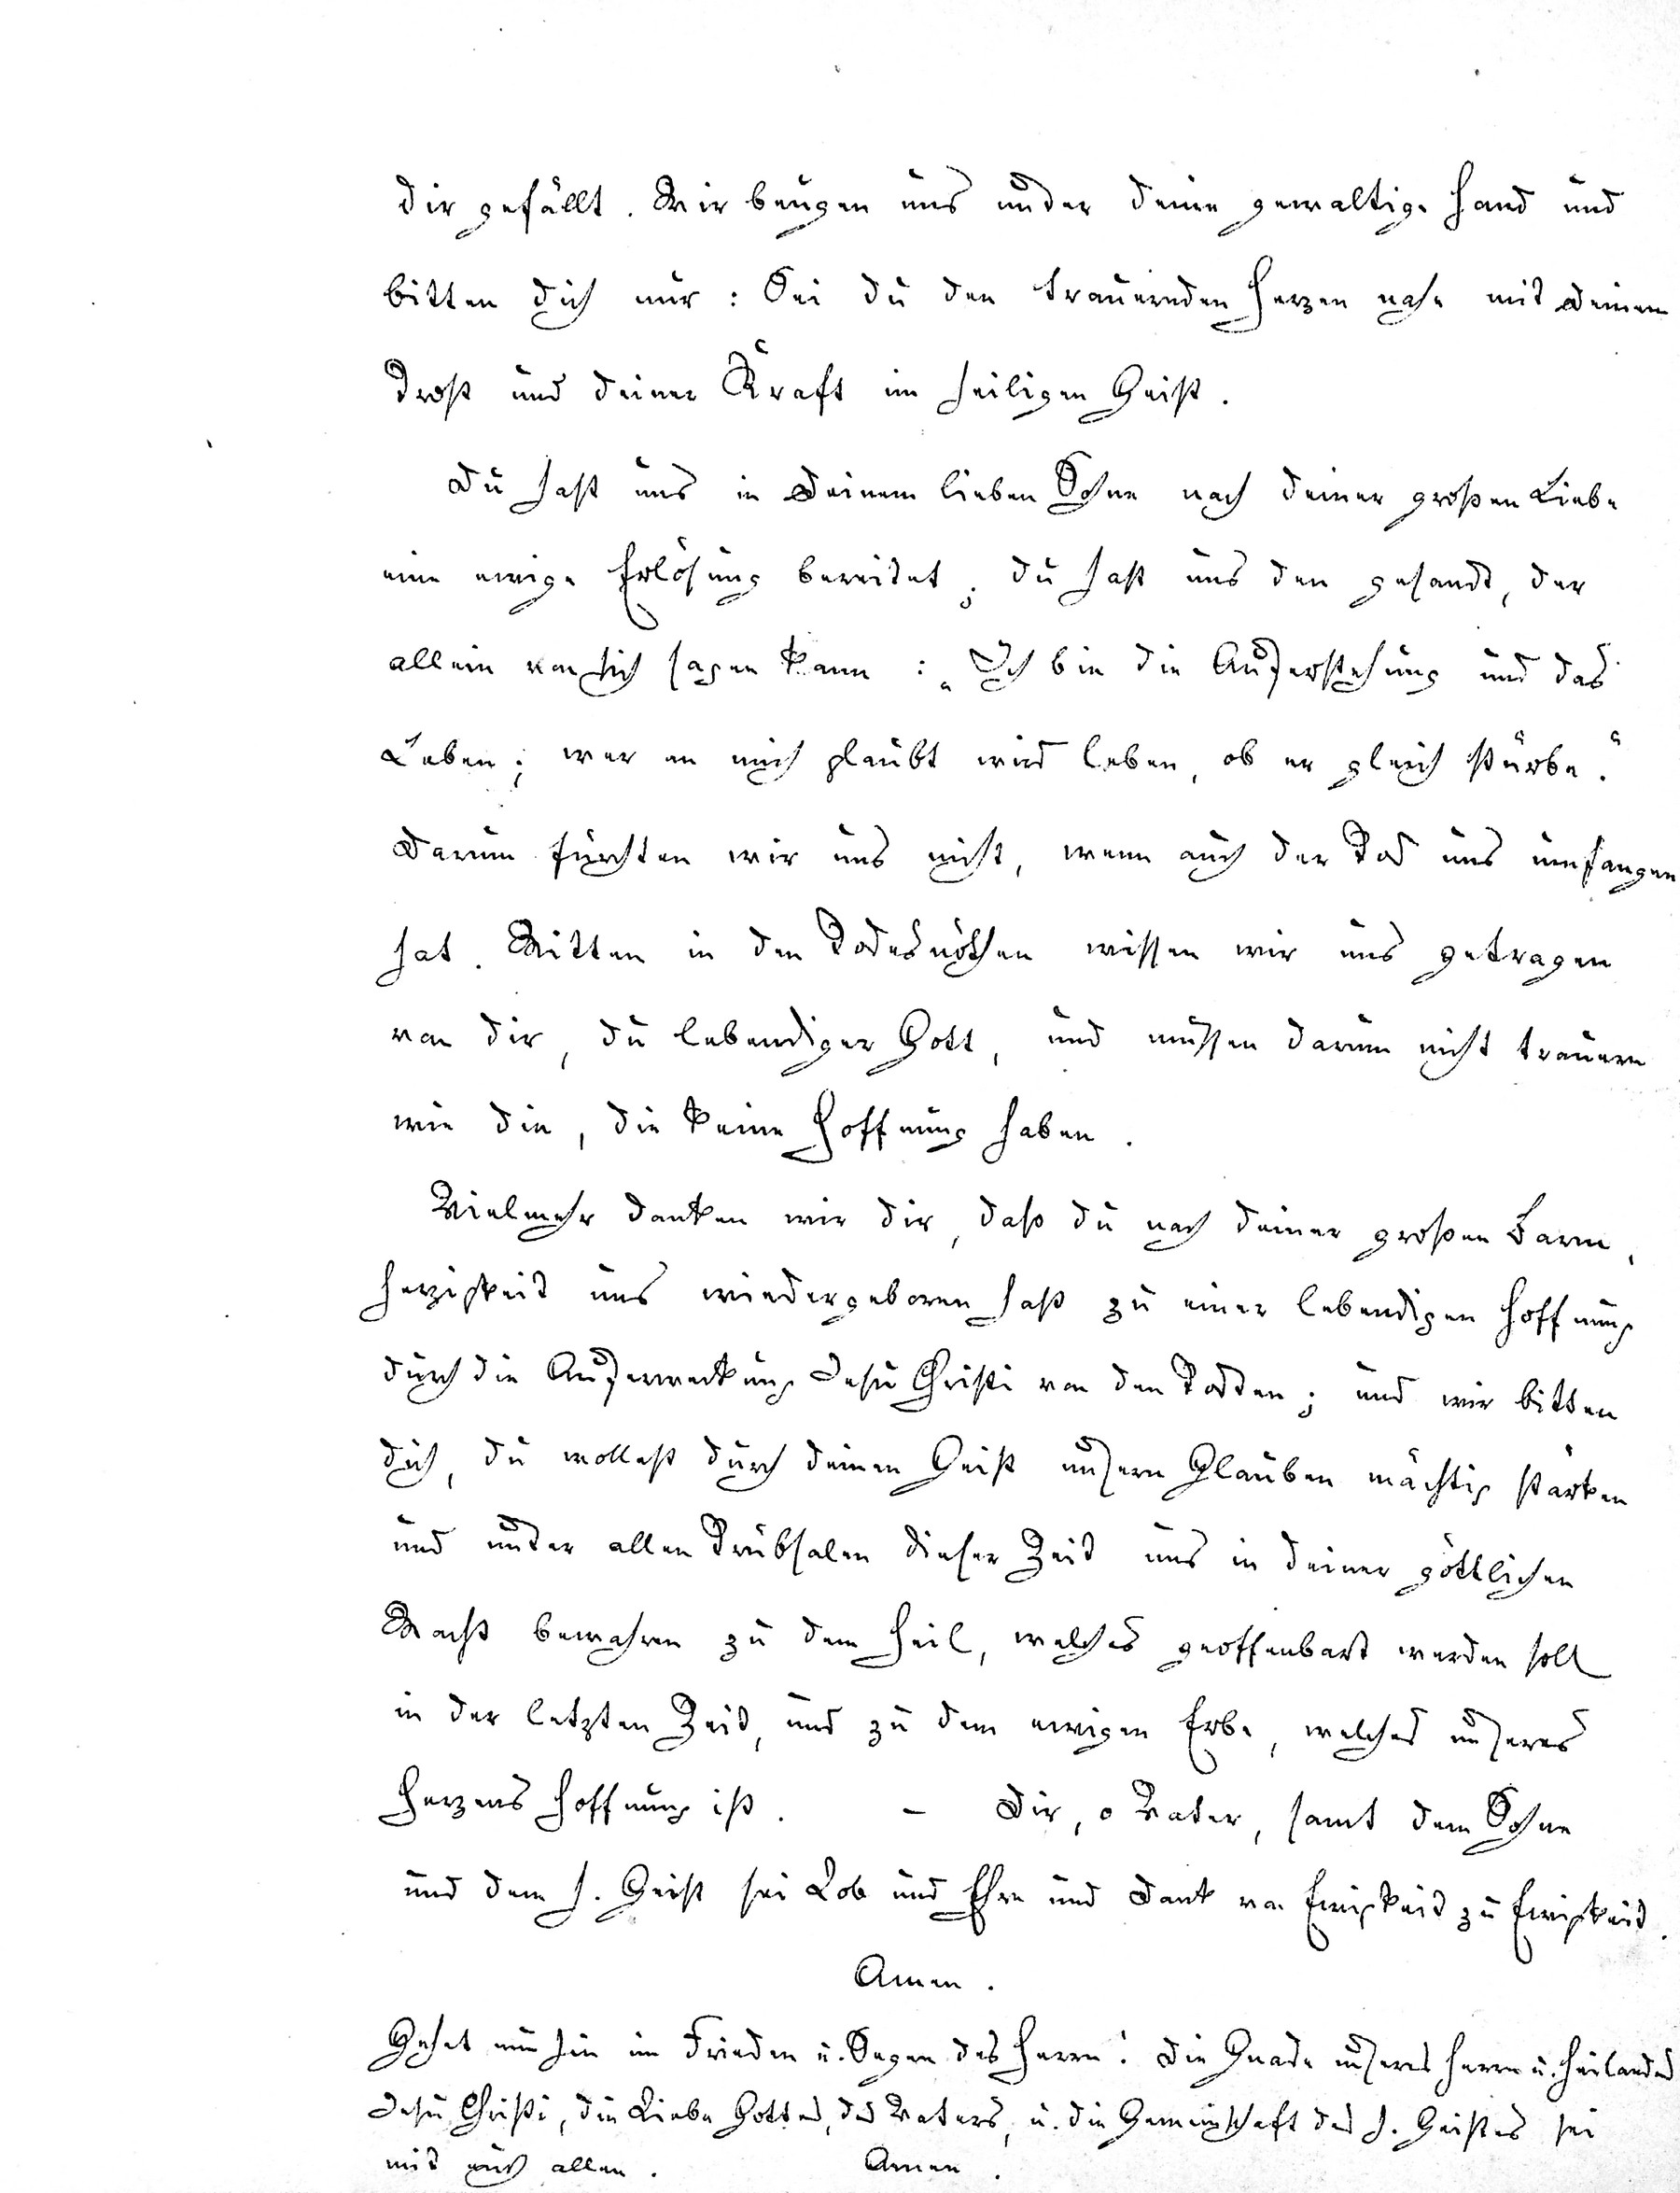 dir gefällt. Wir beugen uns unter deine gewaltige Hand und
bitten dich nur: Sei du den trauernden Herzen nahe mit deinem
Trost und deiner Kraft im heiligen Geist.
Du hast uns in deinem lieben Sohne nach deiner großen Liebe
eine ewige Erlösung bereitet; du hast uns den gesandt, der
allein von sich sagen kann: „Ich bin die Auferstehung und das
Leben; wer an mich glaubt wird leben, ob er gleich stürbe.“
Darum fürchten wir uns nicht, wenn auch der Tod uns umfangen
hat. Mitten in den Todesnöthen wissen wir uns getragen
von dir, du lebendiger Gott, und müssen darum nicht trauern
wie die, die keine Hoffnung haben.
Vielmehr danken wir dir, daß du nach deiner großen Barm-
herzigkeit uns wiedergeboren hast zu einer lebendigen Hoffnung
durch die Auferweckung Jesu Christi von den Todten; und wir bitten
dich, du wollest durch deinen Geist unsern Glauben mächtig stärken
und unter allen Trübsalen dieser Zeit uns in deiner göttlichen
Macht bewahren zu dem Heil, welches geoffenbart werden soll
in der letzten Zeit, und zu dem ewigen Erbe, welches unseres
Herzens Hoffnung ist. – Dir, o Vater, samt dem Sohne
und dem h. Geist sei Lob und Ehre und Dank von Ewigkeit zu Ewigkeit.
Amen.
Gehet nun hin im Frieden u. Segen des Herrn! Die Gnade unseres Herrn u. Heilandes
Jesu Christi, die Liebe Gottes, des Vaters, u. die Gemeinschaft des h. Geistes sei
mit euch allen. Amen.